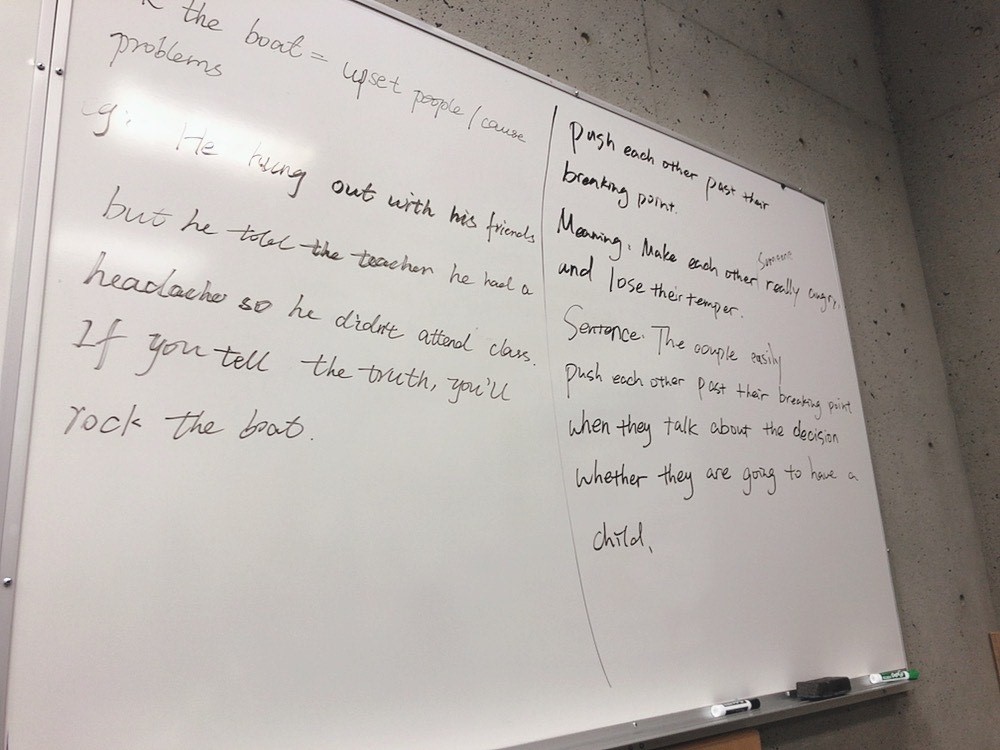 the boat = upset people / cause
problems
g: He hung out with his friends
but he told the teacher he had a
headache so he didn't attend class.
If you tell the truth, you'll
rock the boat.
push each other past their
breaking point.
Meaning. Make each other someone really angry,
and lose their temper.
Sentence. The couple easily
push each other past their breaking point
when they talk about the decision
whether they are going to have a
child.